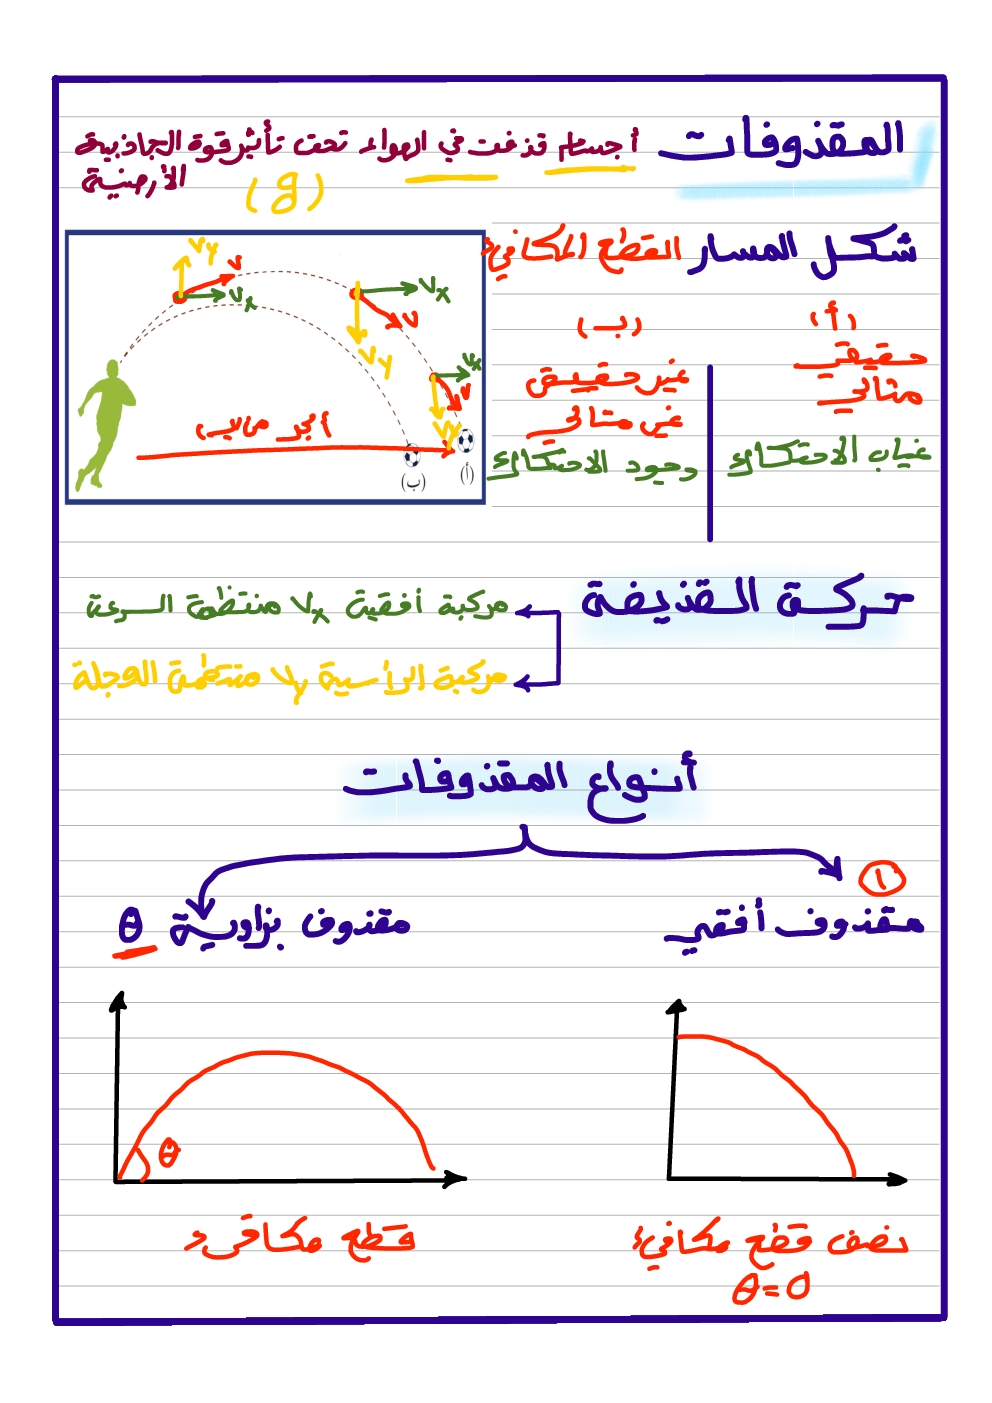 المقذوفات أجسام قذفت في الهواء تحت تأثير قوة الجاذبية
الأرضية
(g)
شكل المسار القطع المكافئ
(أ)
حقيقي
مثالي
غياب الاحتكاك
(ب)
غير حقيقي
غير مثالي
وجود الاحتكاك
vy
v
vx
vx
v
vy
vx
v
vy
(أ)
(ب)
حركة القذيفة
مركبة أفقية vx منتظمة السرعة
مركبة الرأسية vy منتظمة العجلة
أنواع المقذوفات
١
مقذوف أفقي
مقذوف بزاوية θ
θ
نصف قطع مكافئ
θ=0
قطع مكافئ